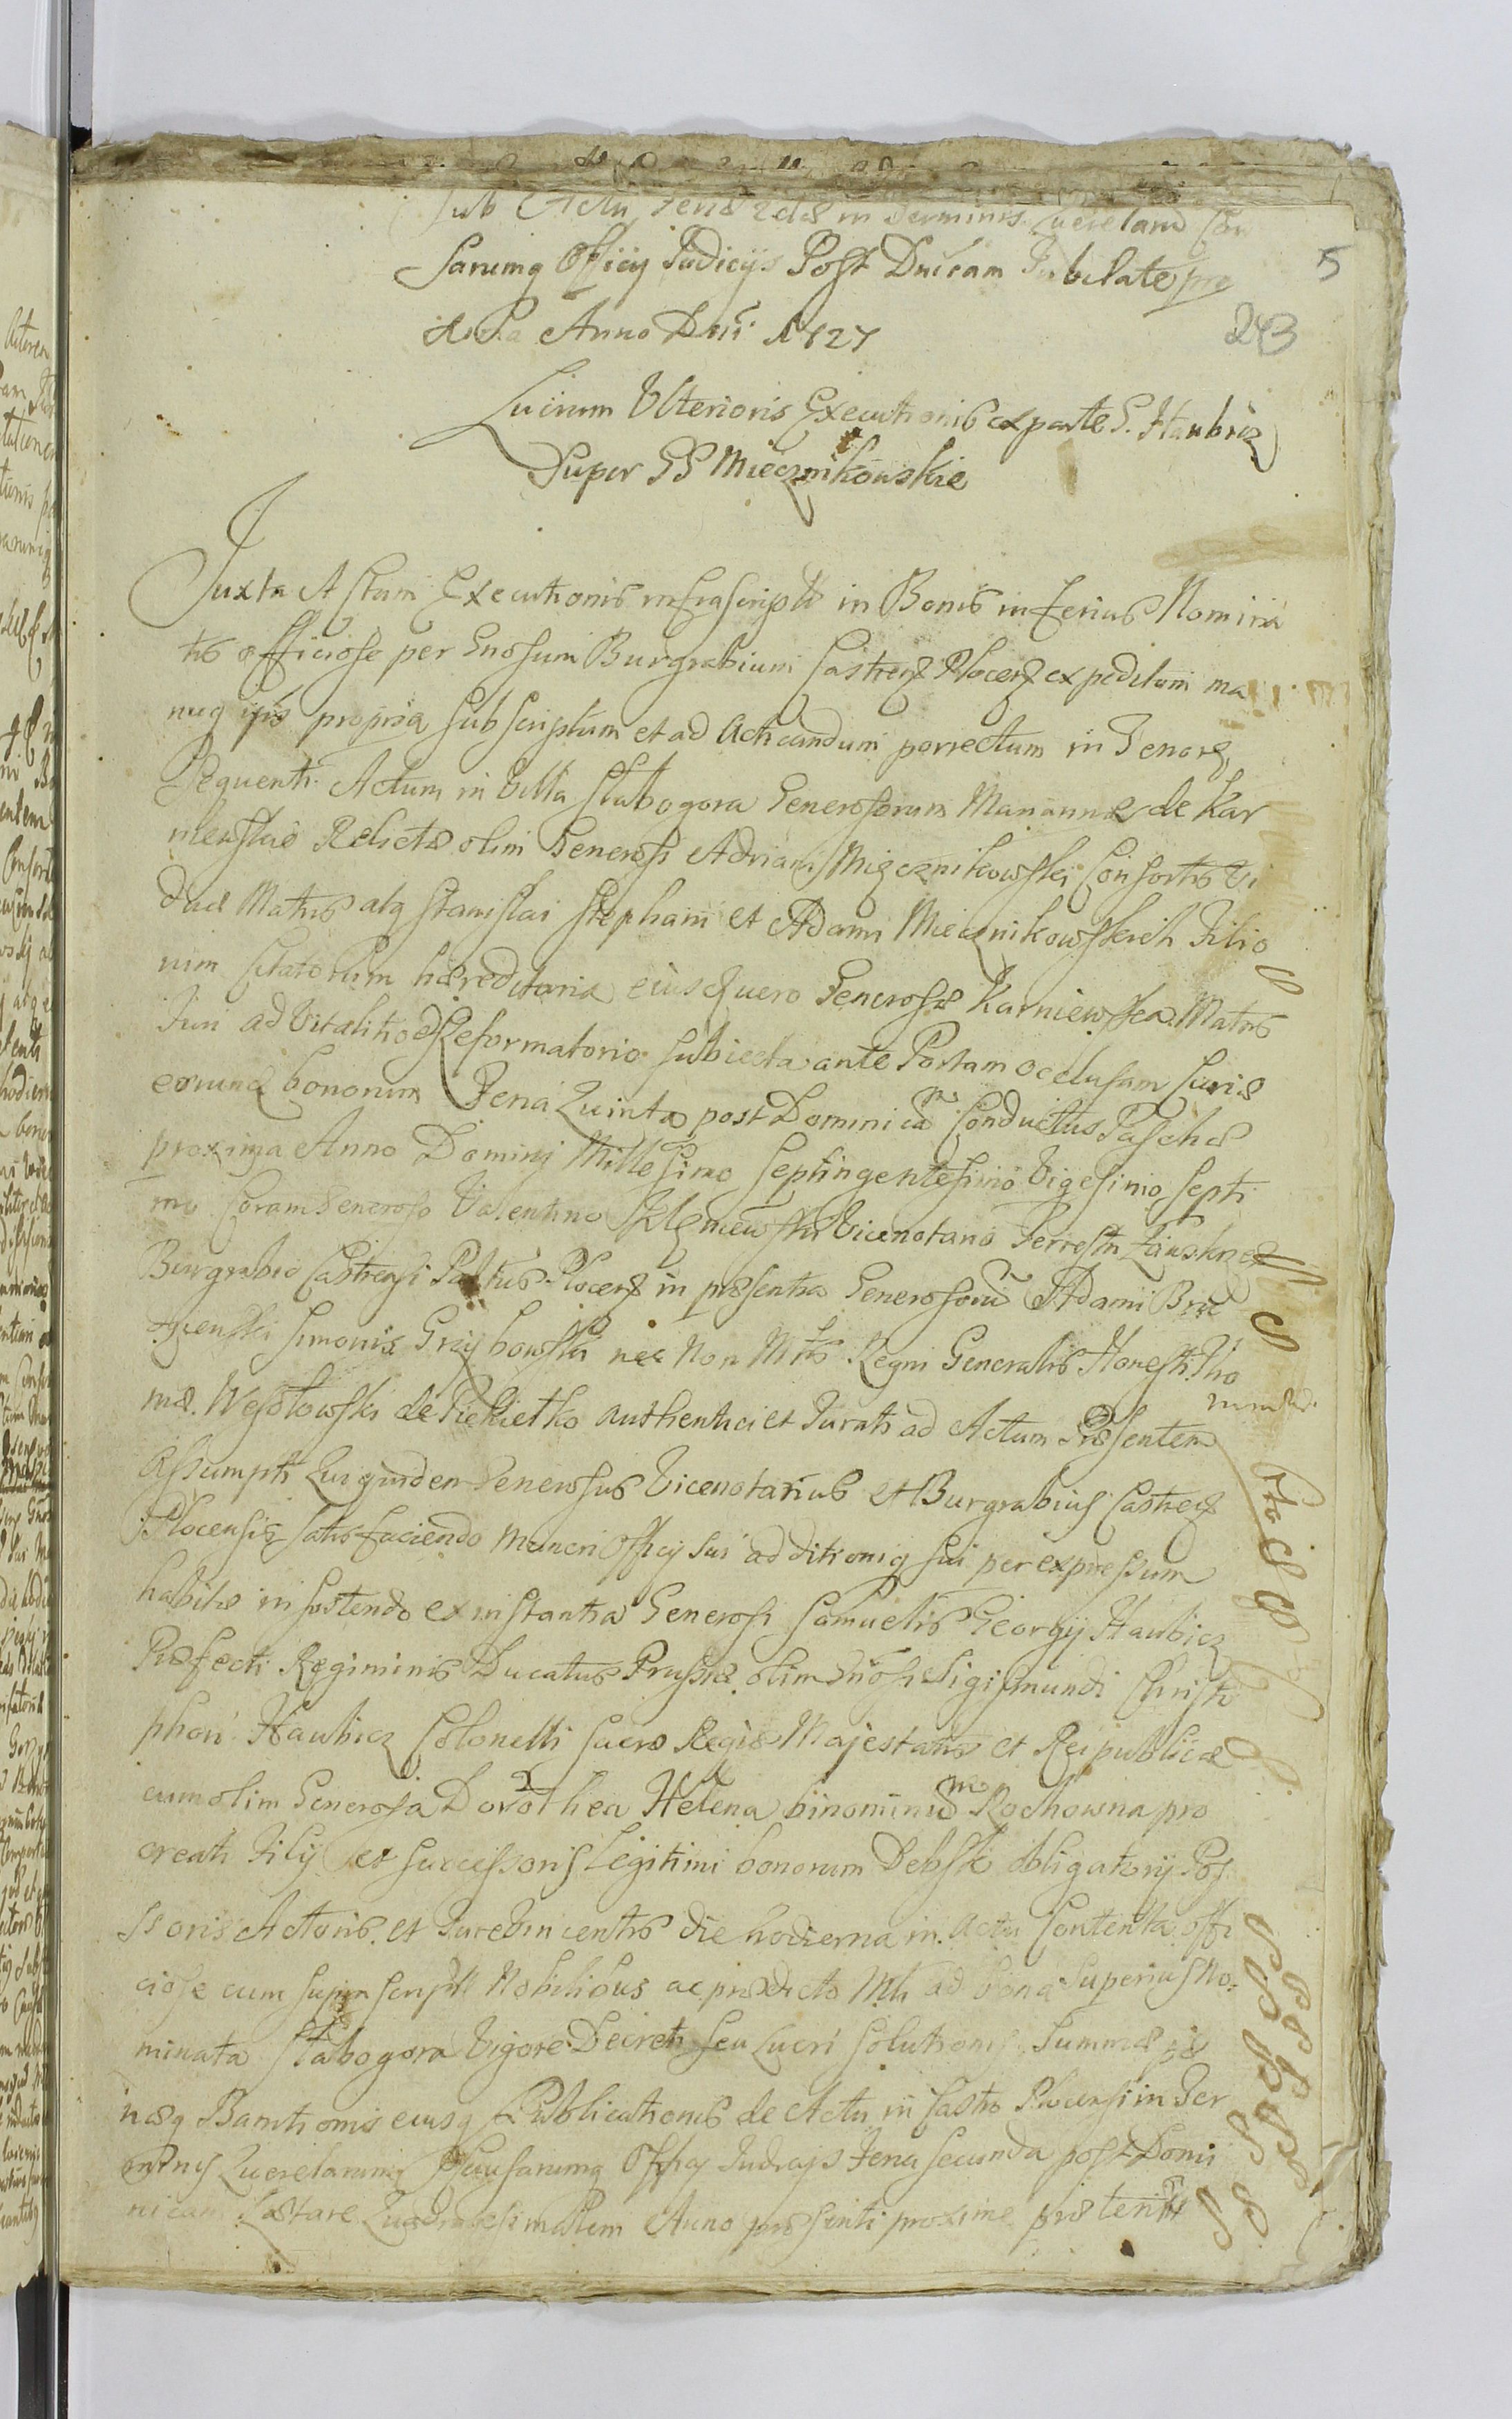 Sub Actu Feria 2da in Terminis Querelaru Cau
sarumq Officij Judicijs Post Dnicam Jubilate pro
Anno Dni 1727
5
243
Lucrum Ulterioris Executionis ex parte G. Haubicz
Super GG Miecznikowskie
Juxta Actum Executionis infrascript in Bonis inferius Nomina
tis officiose per Gnosum Burgrabium Castren Plocen expeditam ma
nuq ejus propria subscriptum et ad Acticandum porrectum in Tenore
Sequenti. Actum in Villa Stabogora Generosorum Mariannae de Kar
niewskie Relictae olim Generosi Adriani Miecznikowski Consortis Vi
duae Matris atq Stanislai Stephani et Adami Miecznikowskich Filio
rum Citatorum haereditaria eiusq uero Generosae Karniewska Matris
Juri advitalitio & Reformatorio subiecta ante Portam occlusam Curiae
eorunq bonorum Feria Quinta post Dominicam Conductus Paschae
proxima Anno Domini Millesimo Septingentesimo Vigesimo Septi
mo Coram Generoso Valentino Vicenotario Terrestri
Burgrabio Castrensi Plocen in praesentia Generosoru Adami Bru
Simonis Grzybowski nec Non Mtlis Regni Generalis Honesti Tho
mae Wesołowski de Piekiełko authentici et Jurati ad Actum Praesentem
Assumpti Qui quidem Generosus Vicenotarius et Burgrabius Castren
Plocensis satisfaciendo Muneri Officij sui ad per expressum
habito insistendo ex instantia Generosi Samuelis Georgij Haubicz
Praefecti Regiminis Ducatus Prussiae olim Gnosi Sigismundi Christo
phori Haubicz Colonelli Sacrae Regiae Majestatis et Reipublicae
cum olim Generosa Dorothea Helena binominum Rochowna pro
creati Filij et successoris Legitimi bonorum Debsk obligatorij Pos
ssoris Actoris et Jure Vincentis die hodierna in actu Contenta offi
ciose cum suprascript Nobilibus ac praedicto Mtli ad bona Superius No
minata Stabogora Vigore Decreti seu Lucri solutionis Summae
naeq Bannitionis eiusq Publicationis de Actu in Castro Plocensi in Ter
minis Querelarum Causarumq Officij Judicijs Feria secunda post Domi
nicam Laetare Quadragesimalem Anno praesenti proxime praeterit